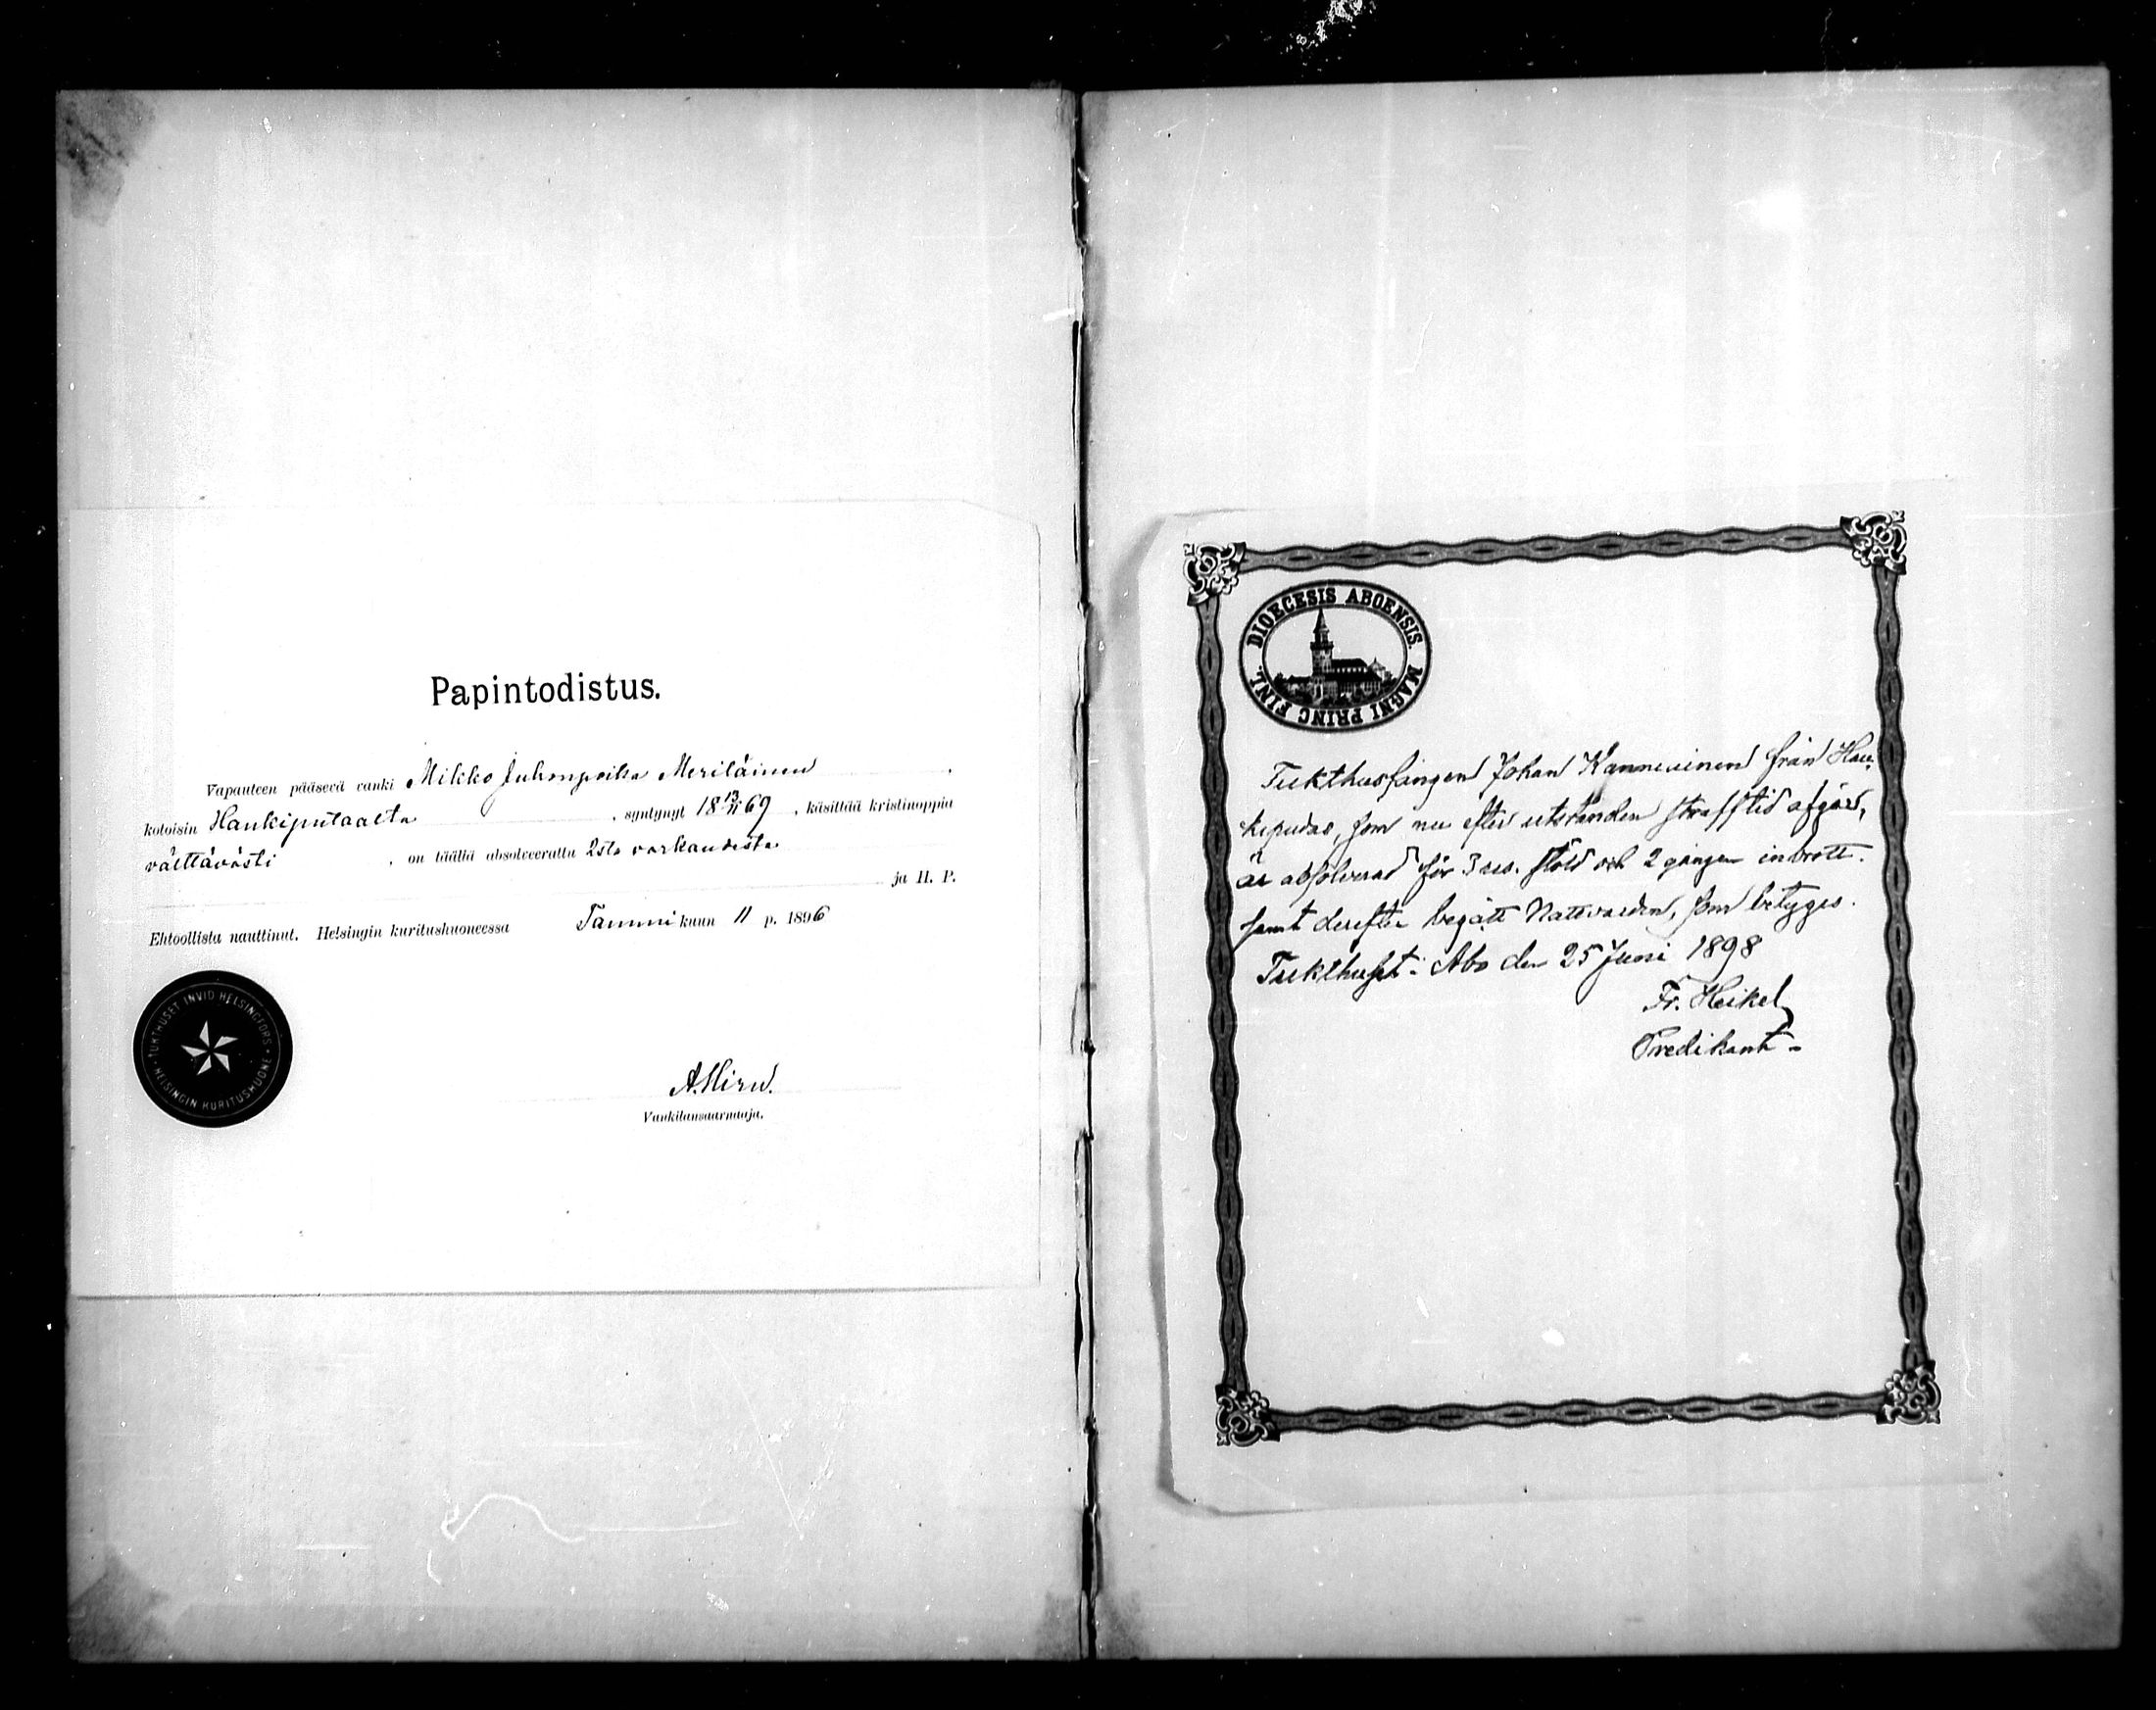 Papintodistus.
Vapauteen pääsevä vanki Mikko Juhonpoika Meriläinen,
kotoisin Haukiputaalta, syntynyt 18 13/11 69, käsittää kristinoppia
välttävästi, on täällä absolveerattu 2sta varkaudesta
ja H. P.
Ehtoollista nauttinut. Helsingin kuritushuoneessa Tammikuun 11 p. 1896
TUKTHUSET INVID HELSINGFORS
HELSINGIN KURITUSHUONE
A. Hirn.
Vankilansaarnaaja.
DIOECESIS ABOENSIS MAGNI PRINC FINL.
Tukthusfången Johan från Hau-
kipudas, som nu efter utstånden strafftid afgår,
är absolverad för 3 res. stöld och 2 gången inbrott.
samt derefter begått Nattvarden, som betygas.
Tukthuset i Åbo den 25 Juni 1898
Fr. Heikel
Predikant